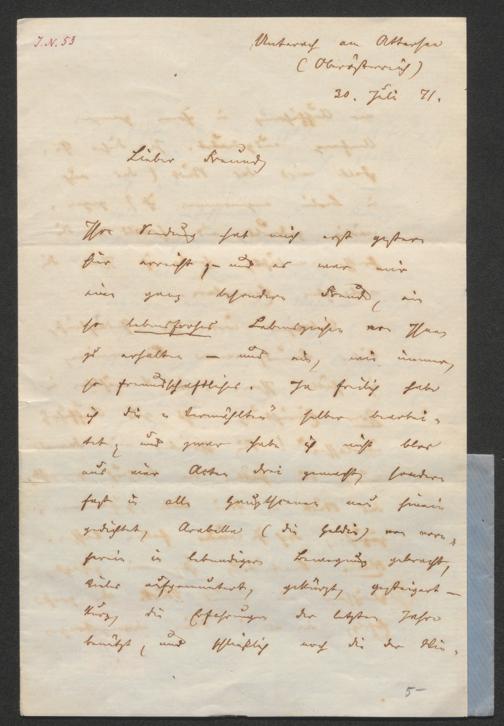 J.N. 53
Unterach am Attersee
(Oberösterreich)
30. Juli 71.
Lieber Freund,
Ihre Sendung hat mich erst gestern
hier erreicht, – und es war mir
eine ganz besondere Freude, ein
so lebensfrohes Lebenszeichen von Ihnen
zu erhalten – und ein, wie immer,
so freundschaftliches. Ja freilich habe
ich die „Vermählten" selber bearbei-
tet, und zwar habe ich nicht blos
aus vier Acten drei gemacht, sondern
fast in alle Hauptscenen neu hinein
gedichtet, Arabella (die Heldin) von vorn-
herein in lebendigere Bewegung gebracht,
Vieles aufgemuntert, gekürzt, gesteigert –
kurz, die Erfahrungen der letzten Jahre
benützt, und schließlich noch die der
5–